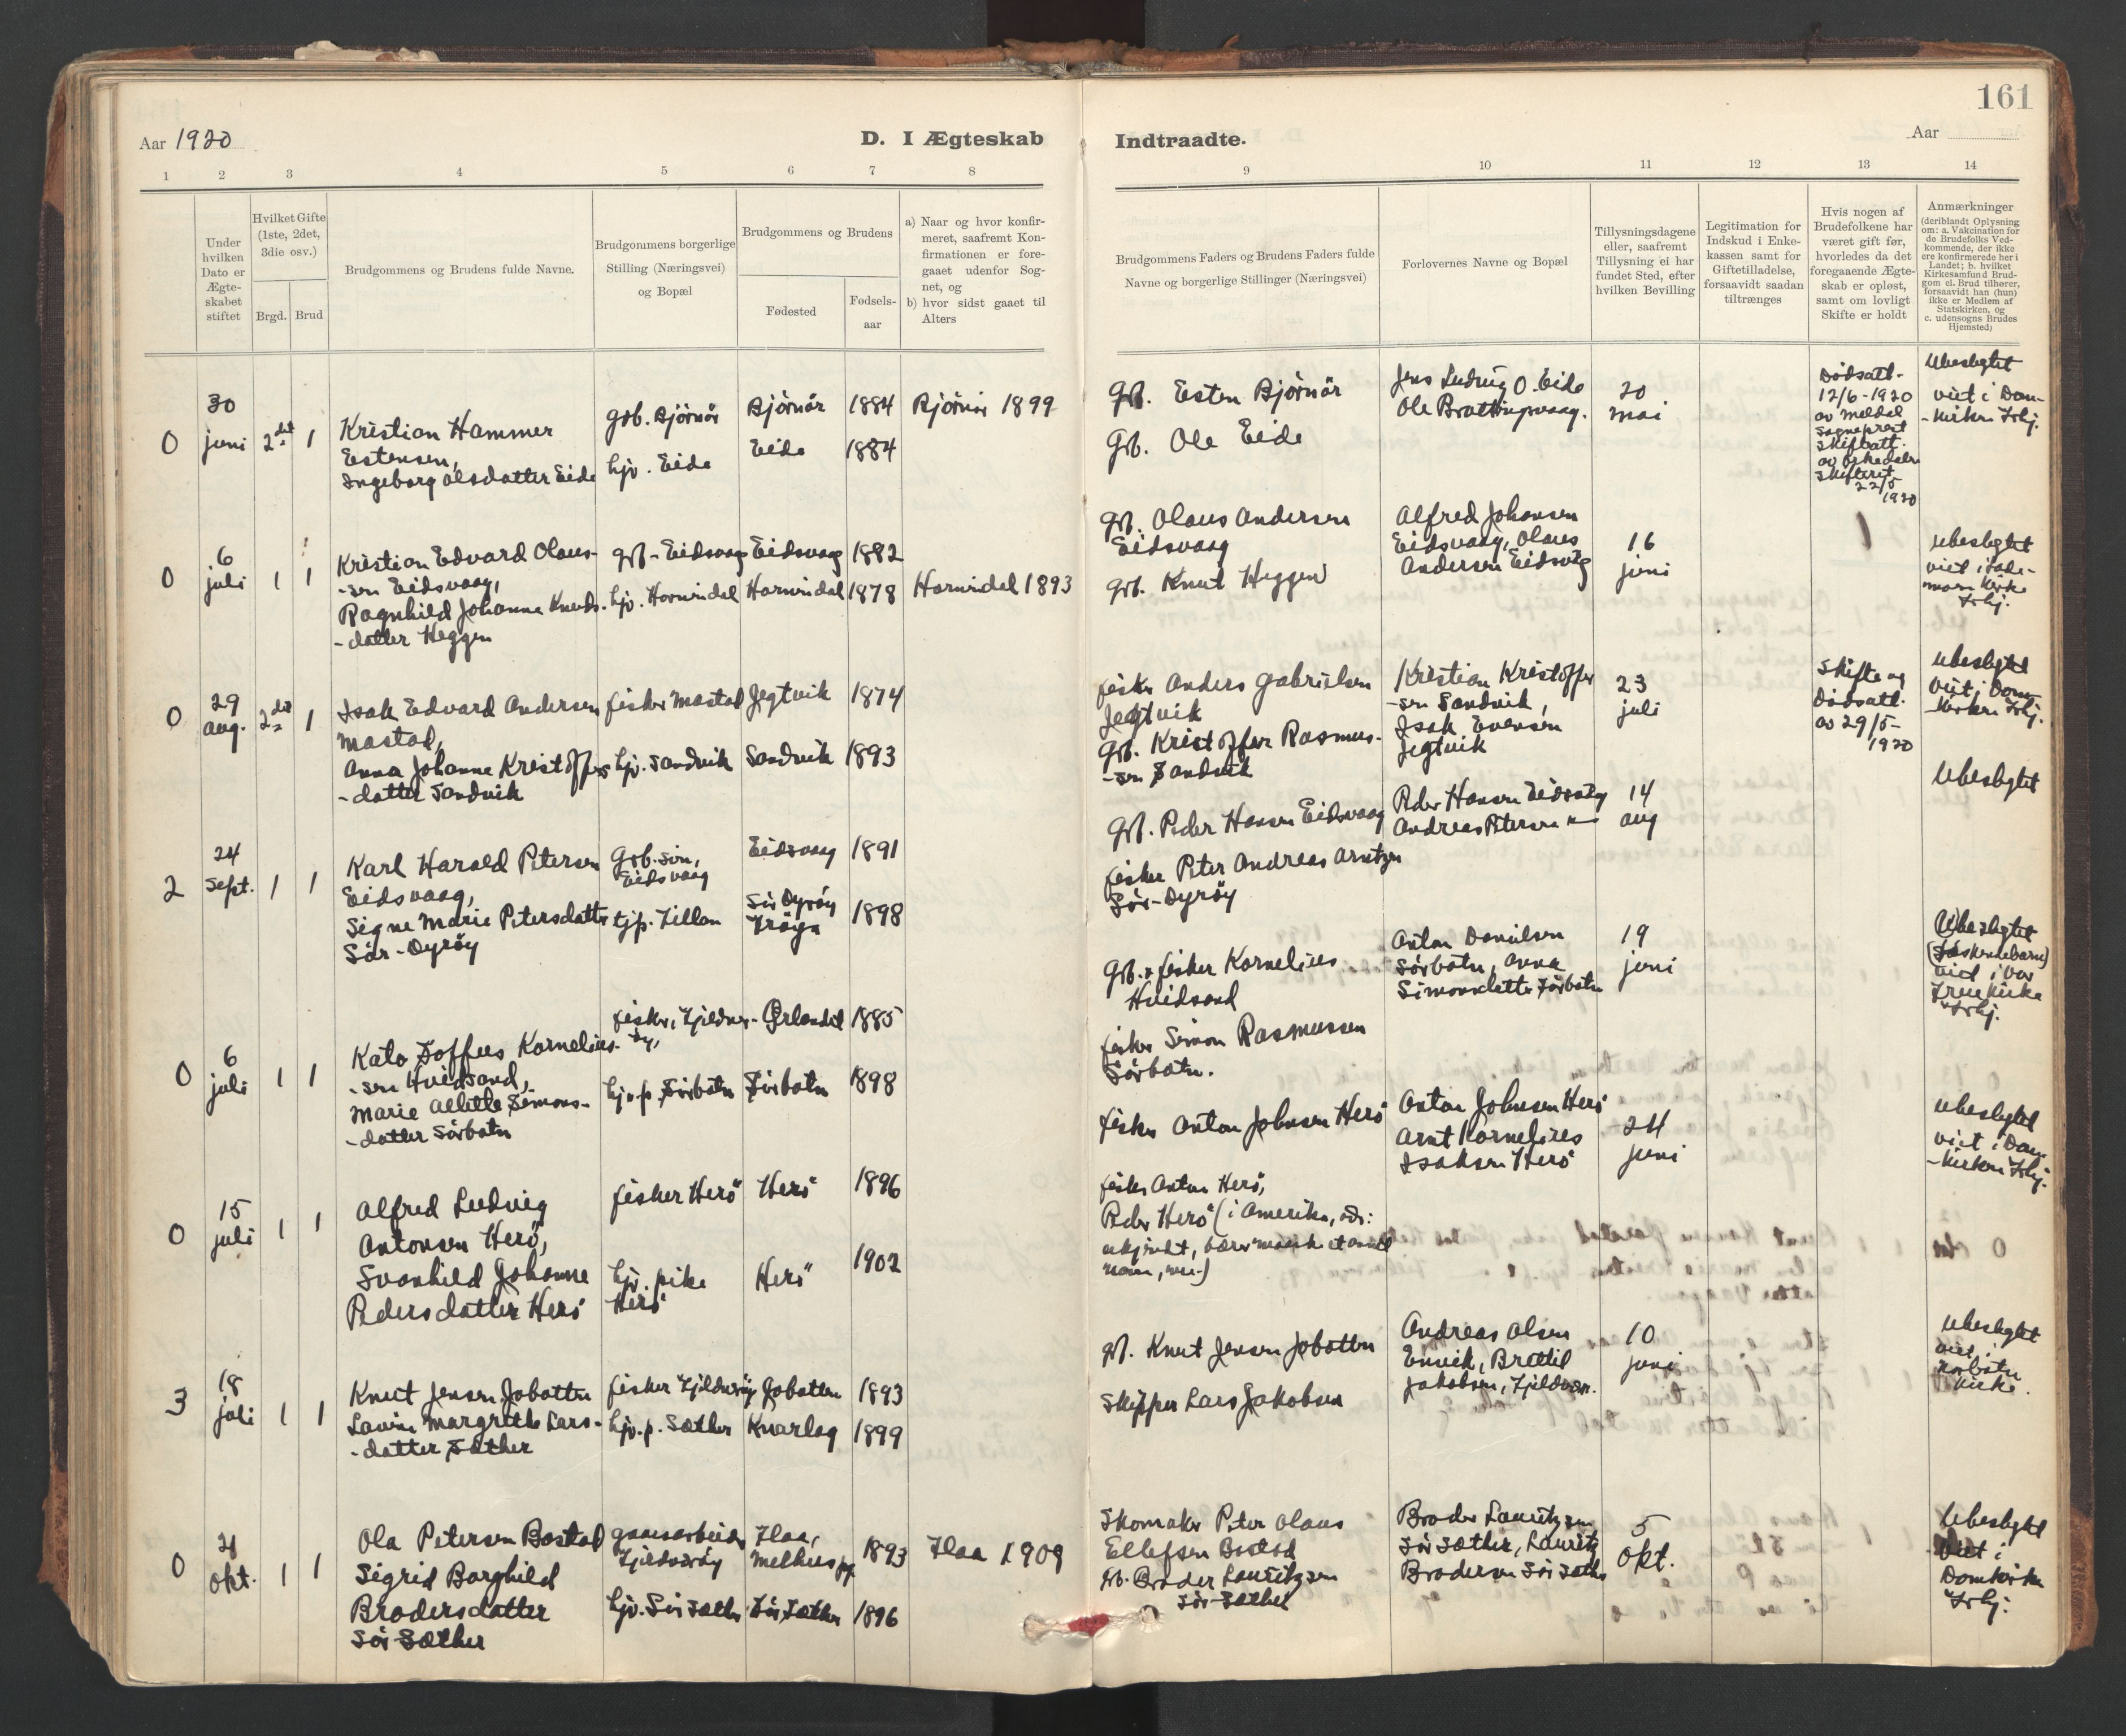 161
Aar 1920
D. I Ægteskab
Indtraadte.
Aar
1 2 3 4 5 6 7 8
9 10 11 12 13 14
Under hvilken Dato er Ægte-skabet stiftet
Hvilket Gifte (1ste, 2det, 3die osv.)
Brgd. Brud
Brudgommens og Brudens fulde Navne.
Brudgommens borgerlige
Stilling (Næringsvei)
og Bopæl
Brudgommens og Brudens
Fødested
Fødsels-
aar
a) Naar og hvor konfir-
meret, saafremt Kon-
firmationen er fore-
gaaet udenfor Sog-
net, og
b) hvor sidst gaaet til
Alters
Brudgommens Faders og Brudens Faders fulde
Navne og borgerlige Stillinger (Næringsvei)
Forlovernes Navne og Bopæl
Tillysningsdagene
eller, saafremt
Tillysning ei har
fundet Sted, efter
hvilken Bevilling
Legitimation for
Indskud i Enke-
kassen samt for
Giftetilladelse,
forsaavidt saadan
tiltrænges
Hvis nogen af
Brudefolkene har
været gift før,
hvorledes da det
foregaaende Ægte-
skab er opløst,
samt om lovligt
Skifte er holdt
Anmærkninger
(deriblandt Oplysning
om: a. Vakcination for
de Brudefolks Ved-
kommende, der ikke
ere konfirmerede her i
Landet; b. hvilket
Kirkesamfund Brud-
gom el. Brud tilhører,
forsaavidt han (hun)
ikke er Medlem af
Statskirken, og
c. udensogns Brudes
Hjemsted)
0
30
juni
2det 1
Kristian Hammer
Estensen,
Ingeborg Olsdatter Eide
gbr. Bjørnør
hjv. Eide
Bjørnør
Eide
1884
1884
Bjørnør 1899
Gbr. Esten Bjørnør
Gbr. Ole Eide
Jens Ludvig O. Eide
Ole Brattingsvaag.
20
mai
Dødsatt.
12/6-1920
av Meldal
Sogneprest
Skifteatt.
av Orkedalen
skifteret
22/5
1920
Ubeslegtet
viet i Dom-
-kirken Trhj.
0
6
juli
1 1
Kristian Edvard Olaus-
-sen Eidsvaag,
Ragnhild Johanna Knuds-
-datter Heggen
gbr. Eidsvaag
hjv. Hornindal
Eidsvaag
Hornindal
1882
1878
Hornindal 1893
gbr. Olaus Andersen
Eidsvaag
Gbr. Knut Heggen
Alfred Johansen
Eidsvaag, Olaus
Andersen Eidsvåg
16
juni
Ubeslegtet
viet i Lade-
moen Kirke
Trhj.
0
29
aug.
2det 1
Isak Edvard Andersen
Mastad,
Anna Johanna Kristoffers
-datter Sandvik
fisker Mastad
hjv. Sandvik
Jegtvik
Sandvik
1874
1893
fisker Anders Gabrielsen
Jegtvik
Gbr. Kristoffer Rasmus-
-sen Sandvik
Kristian Kristoffer
-sen Sandvik,
Isak Evensen
Jegtvik
23
juli
Skifte og
Dødsatt.
av 29/5-
1920
Ubeslegtet
Viet i Dom-
-kirken Trhj.
2
24
Sept.
1 1
Karl Harald Petersen
Eidsvaag,
Signe Marie Petersdatter
Sør-Dyrøy
Gbr. søn,
Eidsvaag
tjp. Tillan
Eidsvaag
Sør Dyrøy
Frøya
1891
1898
Gbr. Peder Hansen Eidsvaag
fisker Peter Andreas Arntzen
Sør-Dyrøy
Peder Hansen Eidsvåg
Andreas Petersen
14
aug
Ubeslegtet
0
6
juli
1 1
Kato Toffeus Kornelius-
-sen Hvidsand,
Marie Alette Simons-
-datter Sørbotn
fisker, Fjeldvær-
øy,
hjv. p. Sørbotn
Ørlandet
Sørbotn
1885
1898
Gbr. & fisker Kornelius
Hvidsand
fisker Simon Rasmussen
Sørbotn.
Anton Danielsen
Sørbotn, Anna
Simonsdatter Sørbotn
19
juni
(U)beslegtet
(Søskendebarn)
viet i Vor
Frue kirke
Trhj.
0
15
juli
1 1
Alfred Ludvig
Antonsen Herø,
Svanhild Johanne
Pedersdatter Herø
fisker Herø
hjv. pike
Herø
Herø
Herø
1896
1902
fisker Anton Johnsen Herø
fisker Anton Herø,
Peder Herø (i Amerika, adr:
ukjendt, bærer maaske et andet
navn, men.)
Anton Johnsen Herø
Arnt Kornelius
Isaksen Herø
24
juni
Ubeslegtet
viet i Dom-
-kirken Trhj.
3
18
juli
1 1
Knut Jensen Jobotten
Lavine Margrethe Lars-
-datter Sæther
fisker Fjeldværøy
hjv. p. Sæther
Jobotten
Knarlag
1893
1899
gbr. Knut Jensen Jobotten
Skipper Lars Jakobsen
Andreas Olsen
Ervik, Brettil
Jakobsen, Fjeldvær.
10
juni
Ubeslegtet
viet i
Norbotn
Kirke.
0
21
Okt.
1 1
Ola Petersen Bostad
Sigrid Borghild
Brodersdatter
Sør-Sæther
gaardsarbeider
Fjeldværøy
hjv. Sør Sæther
Flaa,
Melhus pg.
Sør Sæther
1893
1896
Flaa 1909
Skomaker Peter Olaus
Ellefsen Bostad
gbr. Broder Lauritzsen
Sør-Sæther
Broder Lauritzsen
Sør Sæther, Lauritz
Brodersen Sør Sæther
5
Okt.
Ubeslegtet
Viet i
Domkirken
Trhj.